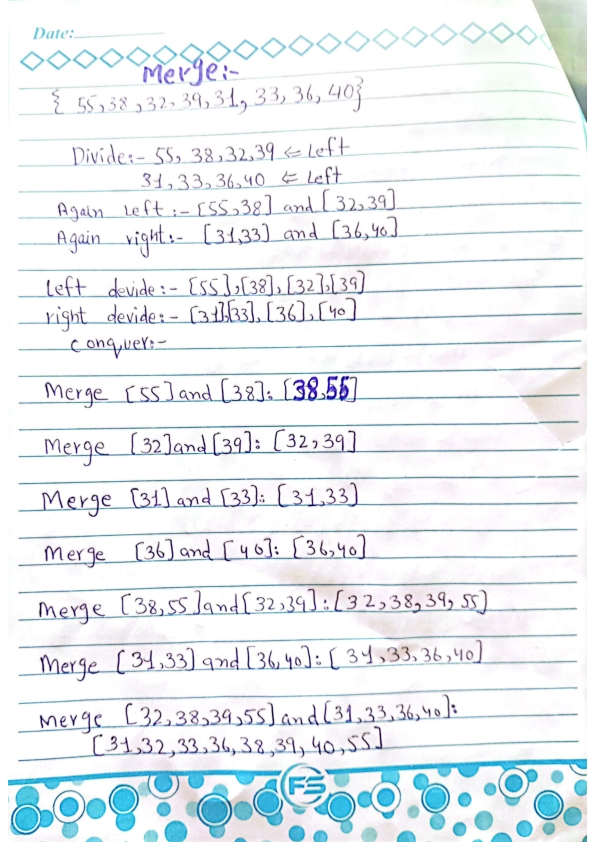 Date:
Merge:-
{ 55,38,32,39,31,33,36,40}
Divide:- 55, 38,32,39 ⇐ Left
31,33,36,40 ⇐ Left
Again Left :- [55,38] and [32,39]
Again right:- [31,33] and [36,40]
Left devide :- [55],[38],[32],[39]
right devide:- [31],[33],[36],[40]
Conquer:-
Merge [55] and [38]: [38,55]
Merge [32] and [39]: [32,39]
Merge [31] and [33]: [31,33]
Merge [36] and [40]: [36,40]
Merge [38,55] and [32,39]: [32,38,39,55]
Merge [31,33] and [36,40]: [31,33,36,40]
Merge [32,38,39,55] and [31,33,36,40]:
[31,32,33,36,38,39,40,55]
FS